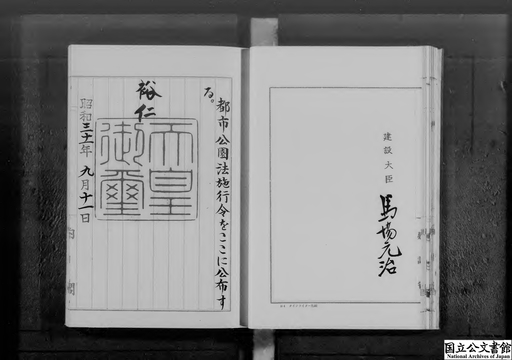 建設大臣
馬場元治
都市公園法施行令をここに公布す
る。
裕仁
天皇
御璽
昭和三十一年 九月十一日
国立公文書館
National Archives of Japan